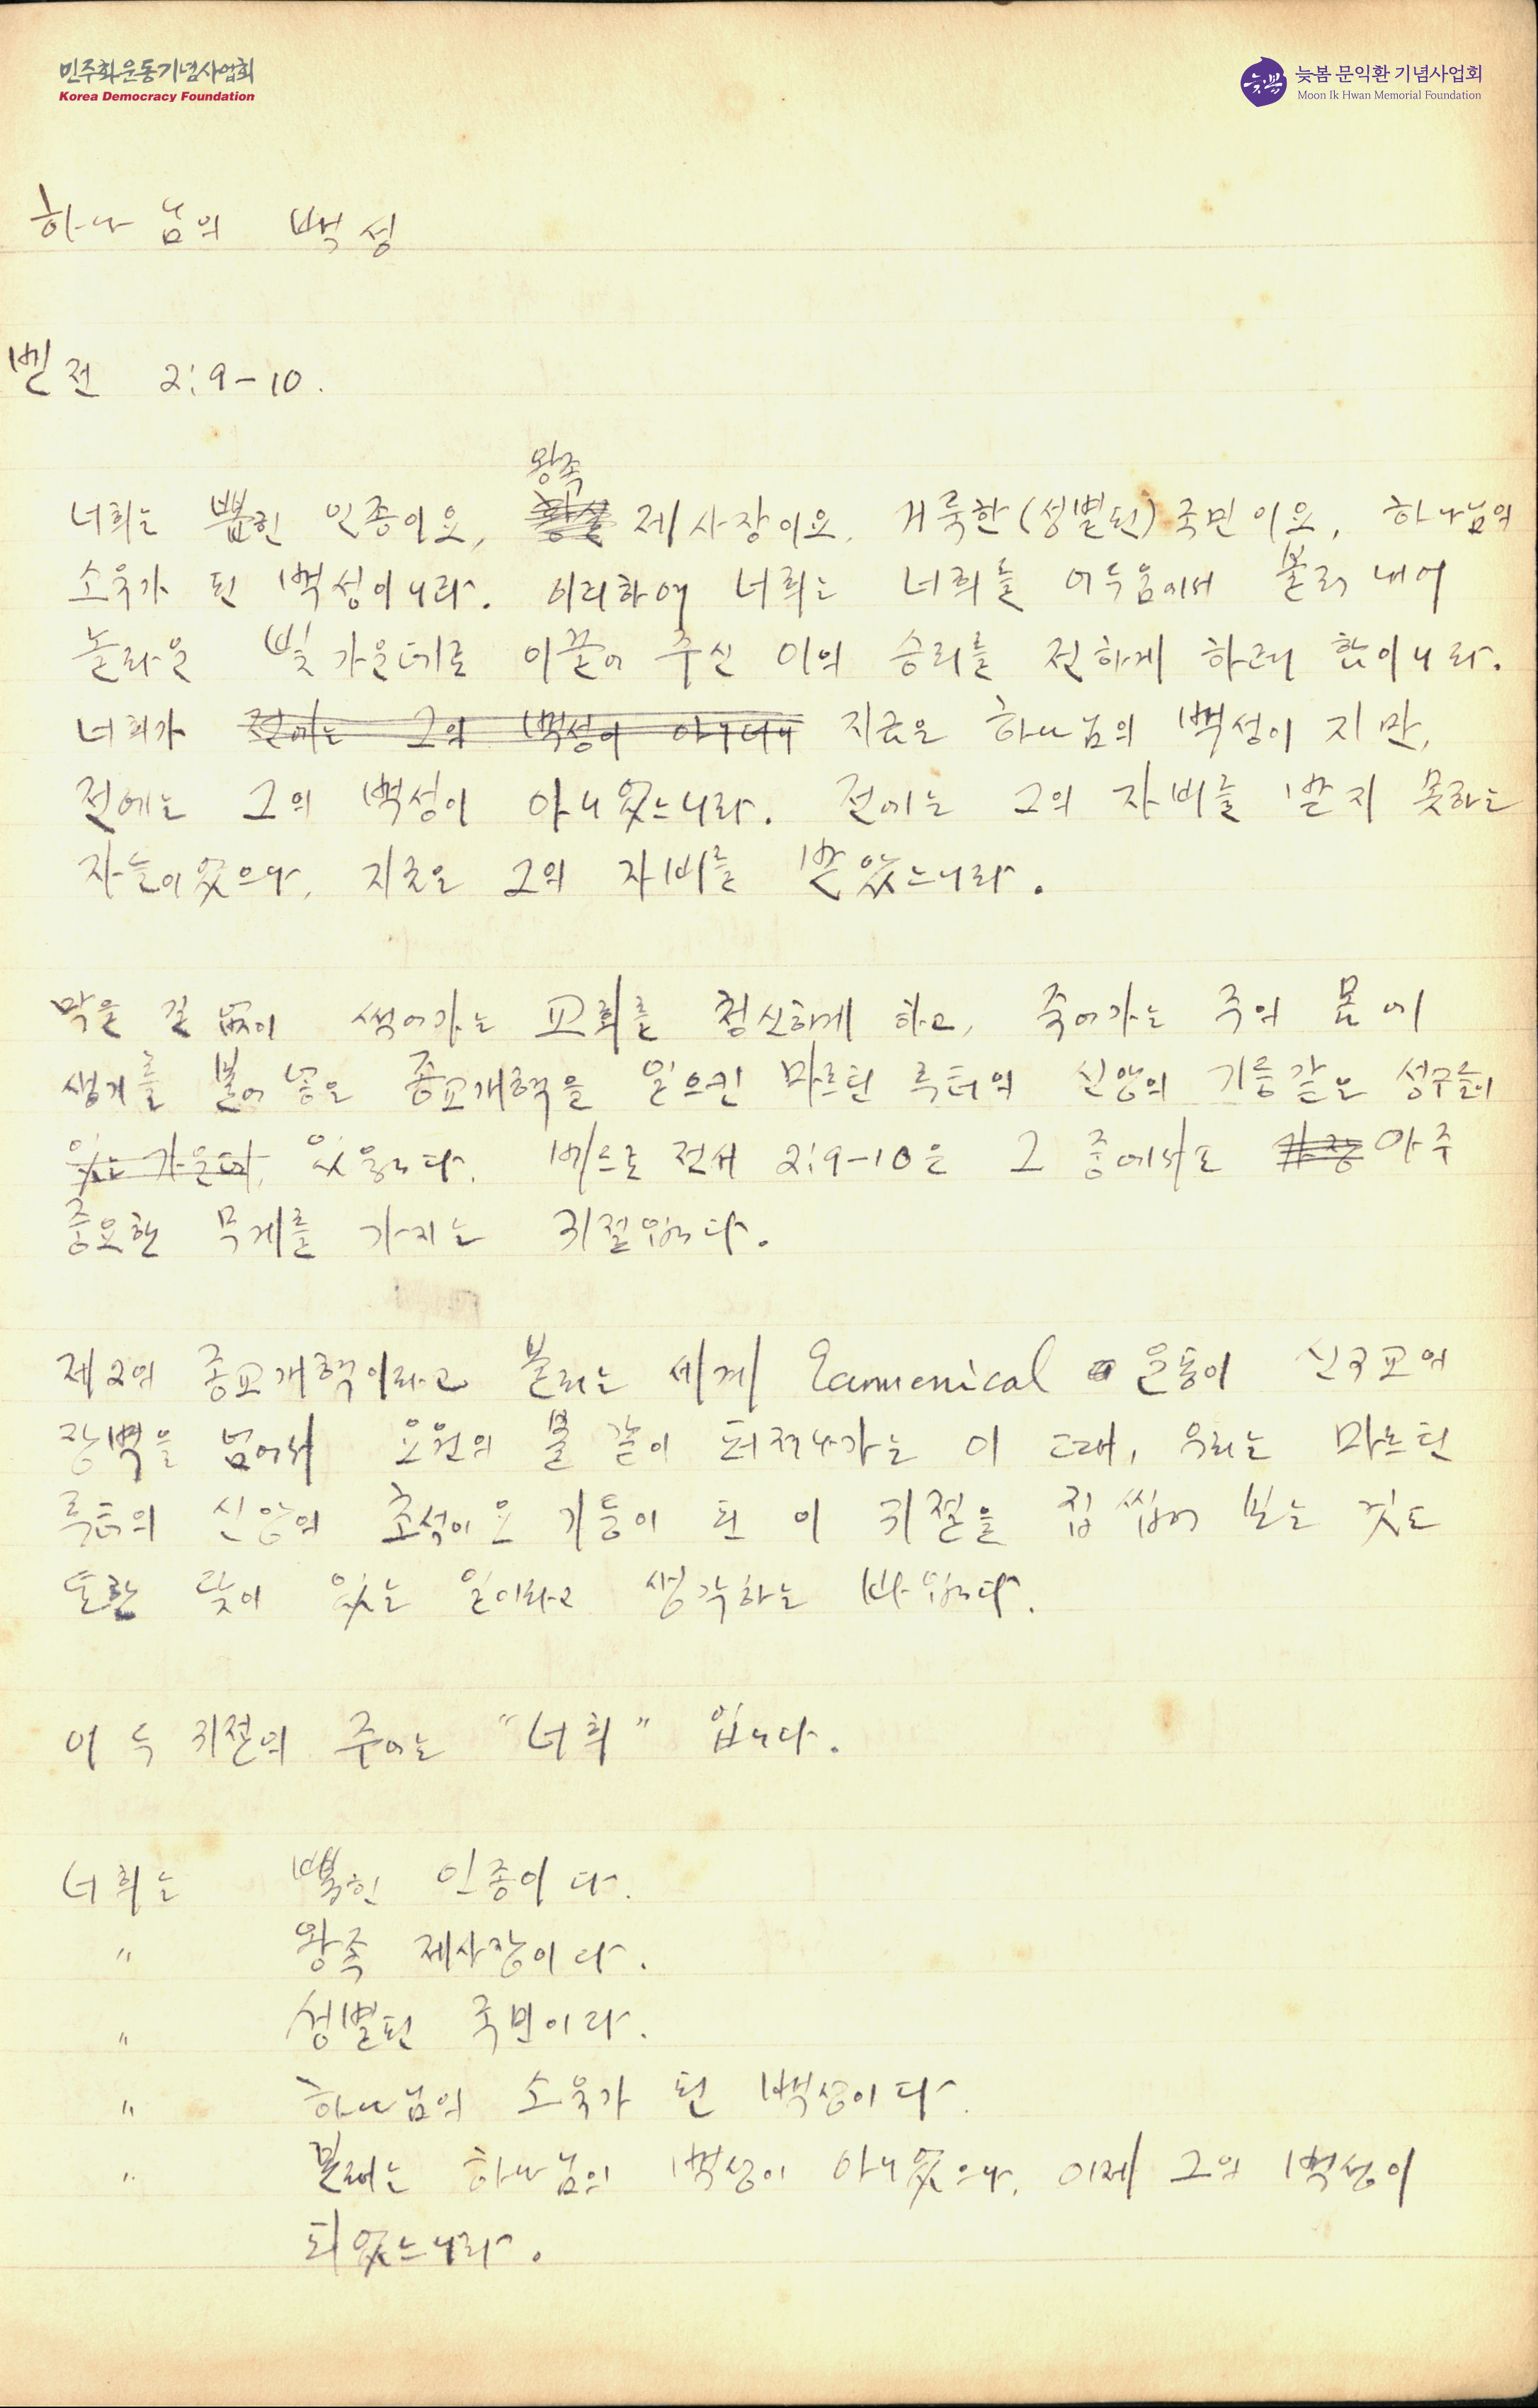 민주화운동기념사업회
Korea Democracy Foundation
늦봄 문익환 기념사업회
Moon Ik Hwan Memorial Foundation
늦봄
하나님의 백성
벧전 2:9-10.
왕족
너희는 뽑힌 인종이요, 제사장이요, 거룩한(성별된) 국민이요, 하나님의
소유가 된 백성이니라. 이리하여 너희는 너희를 어두움에서 불러 내어
놀라운 빛 가운데로 이끌어 주신 이의 승리를 전하게 하려 함이니라.
너희가 전에는 그의 백성이 아니더니 지금은 하나님의 백성이지만,
전에는 그의 백성이 아니었느니라. 전에는 그의 자비를 받지 못하는
자들이었으나, 지금은 그의 자비를 받았느니라.
막을 길 없이 썩어가는 교회를 청신하게 하고, 죽어가는 주의 몸에
생기를 불어넣은 종교개혁을 일으킨 마르틴 루터의 신앙의 기둥같은 성구들이
있는 가운데, 있읍니다. 베드로 전서 2:9-10은 그 중에서도 가장 아주
중요한 무게를 가지는 귀절입니다.
제2의 종교개혁이라고 불리는 세계 Ecumenical 운동이 신구교의
장벽을 넘어서 요원의 불 같이 퍼져나가는 이 때, 우리는 마르틴
루터의 신앙의 초석이요 기둥이 된 이 귀절을 집씹어 보는 것도
또한 뜻이 있는 일이라고 생각하는 바입니다.
이 두 귀절의 주어는 "너희" 입니다.
너희는 뽑힌 인종이다.
" 왕족 제사장이다.
" 성별된 국민이다.
" 하나님의 소유가 된 백성이다.
" 본래는 하나님의 백성이 아니었으나, 이제 그의 백성이
되었느니라.